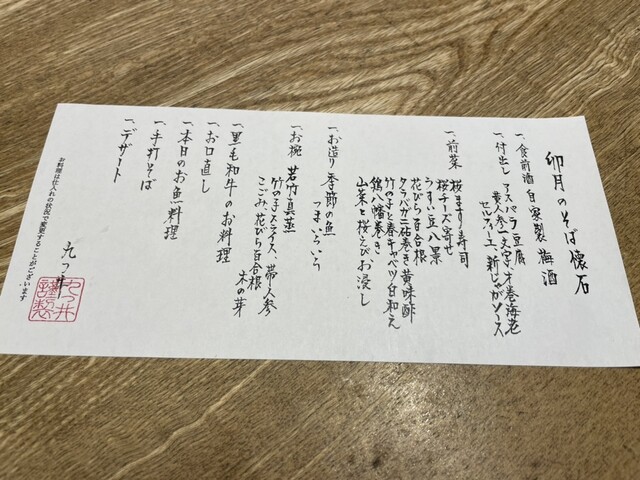 卯月のそば懐石
一、食前酒 自家製 梅酒
一、付出し アスパラ豆腐
黄人参一文字 木巻海老
セルフィーユ、新じゃがソース
一、前菜 桜ます寿司
桜チーズ寄せ
うすい豆八景
花びら百合根
タラバガニ砧巻き黄味酢
竹の子と春キャベツ白和え
鶏八幡巻き
山菜と桜えびお浸し
一、お造り 季節の魚
つまいろいろ
一、お椀 若竹真蒸
竹の子スライス、帯人参
こごみ、花びら百合根
木の芽
一、黒毛和牛のお料理
一、お口直し
一、本日のお魚料理
一、手打そば
一、デザート
お料理は仕入れの状況で変更することがございます
九つ井